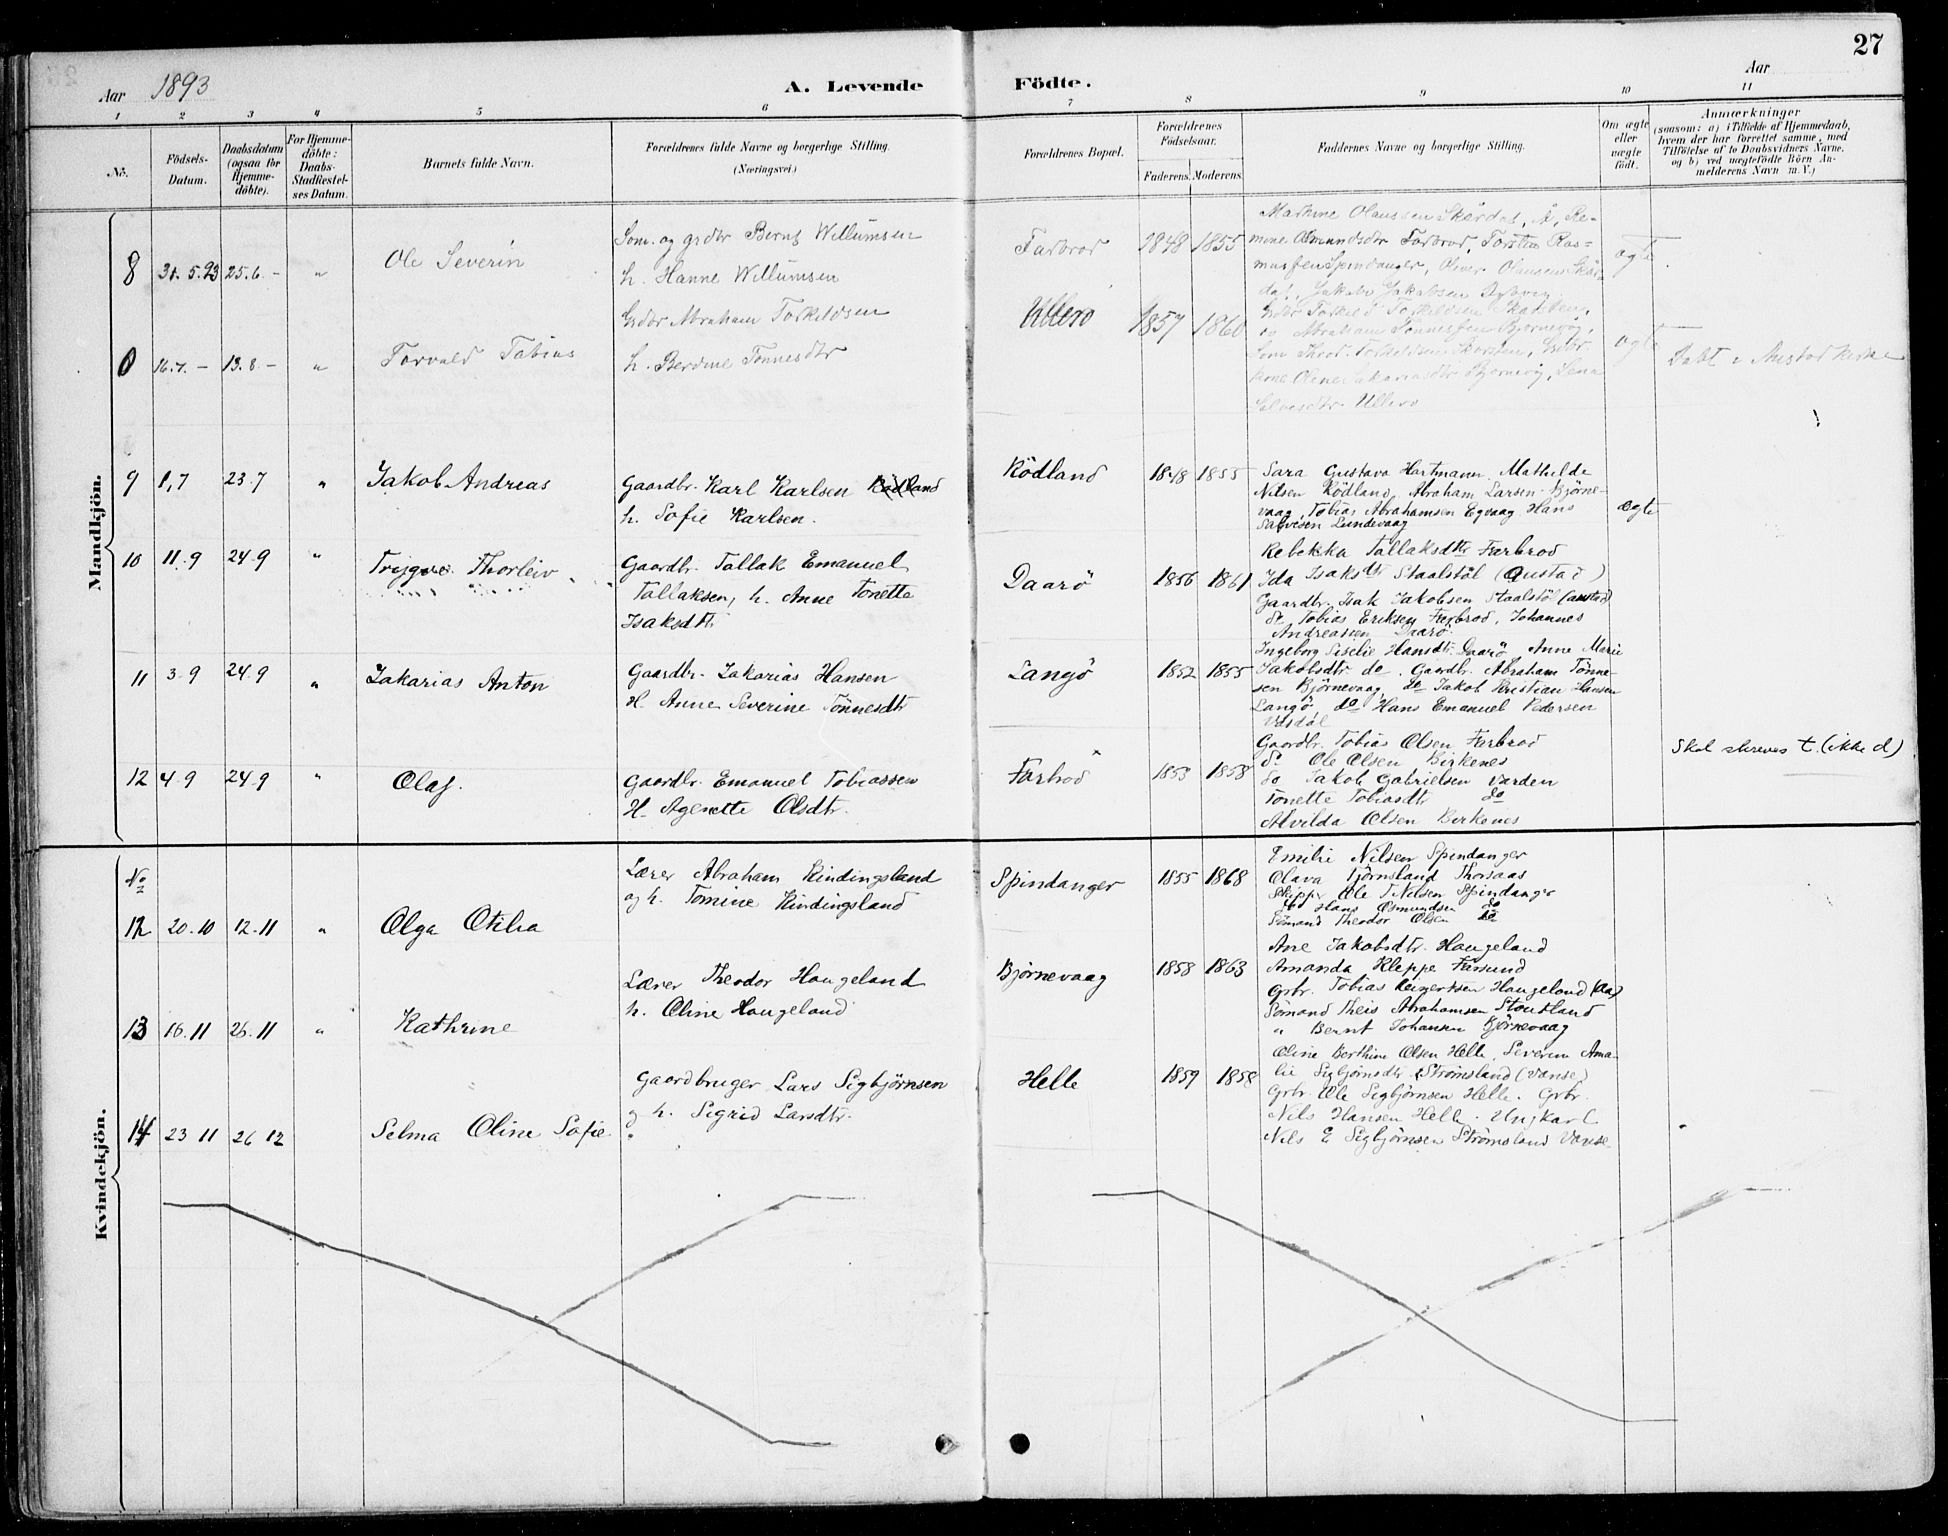 27
Aar 1893
A. Levende Födte.
Aar
1 2 3 4 5 6 7 8 9 10 11
No.
Födsels-Datum.
Daabsdatum (ogsaa för Hjemme-döbte).
For Hjemme-döbte: Daabs-Stadfæstel-ses Datum.
Barnets fulde Navn.
Forældrenes fulde Navne og borgerlige Stilling.
(Næringsvei.)
Forældrenes Bopæl.
Forældrenes Födselsaar.
Faderens. Moderens.
Faddernes Navne og borgerlige Stilling.
Om ægte eller uægte födt.
Anmærkninger
(saasom: a) i Tilfælde af Hjemmedaab, hvem der har forrettet samme, med Tilföielse af to Daabsvidners Navne, og b) ved uægtefödte Börn An-melderens Navn m. V.)
Mandkjön.
8 31.5.93 25.6.- " Ole Severin
Som. og grdbr Bernt Willumsen
h. Hanne Willumsen
Farbrod 1848 1855
Martine Olaussen Skårdal, Å, Re-
mine Osmundsdtr Farbrod, Torstein Ras-
mussen Spindanger, Oliver Olaussen Skår-
dal, Jakob Jakobsen
ægte
0 16.7.- 13.8.- " Torvald Tobias
Grdbr Abraham Torkildsen
h. Berdine Tönnesdtr
Ullerö 1857 1860
Grdbr Torkild Torkildsen
Abraham Tönnessen Bjernevig,
Olene Sakariasdtr Bjernevig, Lena
Ullerö
ægte
Døbt i Austad Kirke
9 1.7 23.7 " Jakob Andreas
Gaardbr. Karl Karlsen Rödland
h. Sofie Karlsen.
Rödland 1848 1855
Sara Gustava Hartmann, Mathilde
Nilsen Rödland, Abraham Larsen Bjørne-
vaag, Tobias Abrahamsen Egvaag Hans
Salvesen Lundevaag
ægte
10 11.9 24.9 " Trygve Thorleiv
Gaardbr. Tallak Emanuel
Tallaksen, h. Anne Tonette
Isaksdtr
Daarö 1856 1861
Rebekka Tallaksdtr Farbrod
Ida Isaksdtr Staalstöl (Austad)
Gaardbr. Isak Jakobsen Staalstöl (austad)
do Tobias Eriksen Farbrod, Johannes
Andreassen Daarö.
11 3.9 24.9 " Zakarias Anton
Gaardbr. Zakarias Hansen
H. Anne Severine Tönnesdtr
Langö 1852 1855
Ingeborg Siselie Hansdtr. Daarö, Anne Marie
Jakobsdtr do. Gaardbr. Abraham Tönne-
sen Bjørnevaag, do Jakob Kristian Hansen
Langö, do Hans Emanuel Pedersen
12 4.9 24.9 " Olaf.
Gaardbr. Emanuel Tobiassen
H. Agenette Olsdtr.
Farbrod 1853 1858
Gaardbr. Tobias Olsen Farbrod
do Ole Olsen Birkenes
do Jakob Gabrielsen Varden
Tonette Tobiasdtr do
Alvilda Olsen Birkenes
Skal skrives t. (ikke d)
Kvindekjön.
No
12 20.10 12.11 " Olga Otilia
Lærer Abraham Kindingsland
og h. Tomine Kindingsland
Spindanger 1855 1868
Emilie Nilsen Spindanger
Olava Tjørnsland Thorsaas
Skipper Ole T Nilsen Spindanger
do Hans Osmundsen do
Sömand Theodor Olsen do
13 16.11 26.11 " Kathrine
Lærer Theodor Haugeland
h. Oline Haugeland
Bjørnevaag 1858 1863
Ane Jakobsdtr. Haugeland
Amanda Kleppe Farsund
Grbr. Tobias Reiertsen Haugeland (Aa)
Sömand Theis Abrahamsen Stoutland
" Bernt Johansen Bjørnevaag
14 23 11 26 12 Selma Oline Sofie
Gaardbruger Lars Sigbjørnsen
og h. Sigrid Larsdtr.
Helle 1859 1858
Oline Berthine Olsen Helle, Severine Ama-
lie Sigbjørnsdtr Strømsland (Vanse)
Grbr. Ole Sigbjørnsen Helle. Grbr.
Nils Hansen Helle. Ungkarl
Nils E Sigbjørnsen Strømsland Vanse